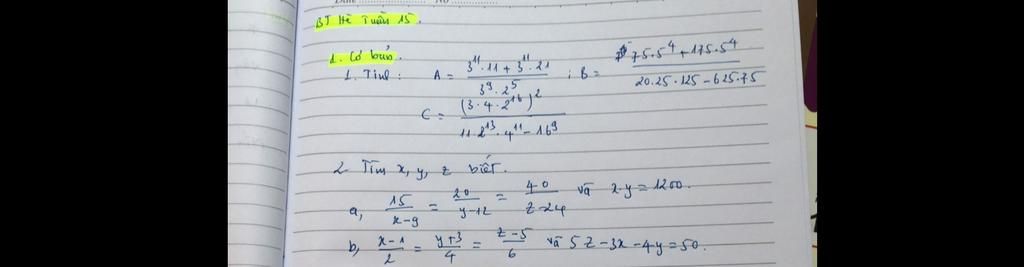 BT Hè Tuần 15.
1. Cơ bản.
1. Tính: A = (3^11 · 11 + 3^11 · 21) / (3^9 · 2^5) ; B = (75 · 5^4 + 175 · 5^4) / (20 · 25 · 125 - 625 · 75)
C = (3 · 4 · 2^16)^2 / (11 · 2^13 · 4^11 - 16^9)
2. Tìm x, y, z biết.
a, 15/(x-9) = 20/(y-12) = 40/(z-24) và x·y = 1200.
b, (x-1)/2 = (y+3)/4 = (z-5)/6 và 5z - 3x - 4y = 50.